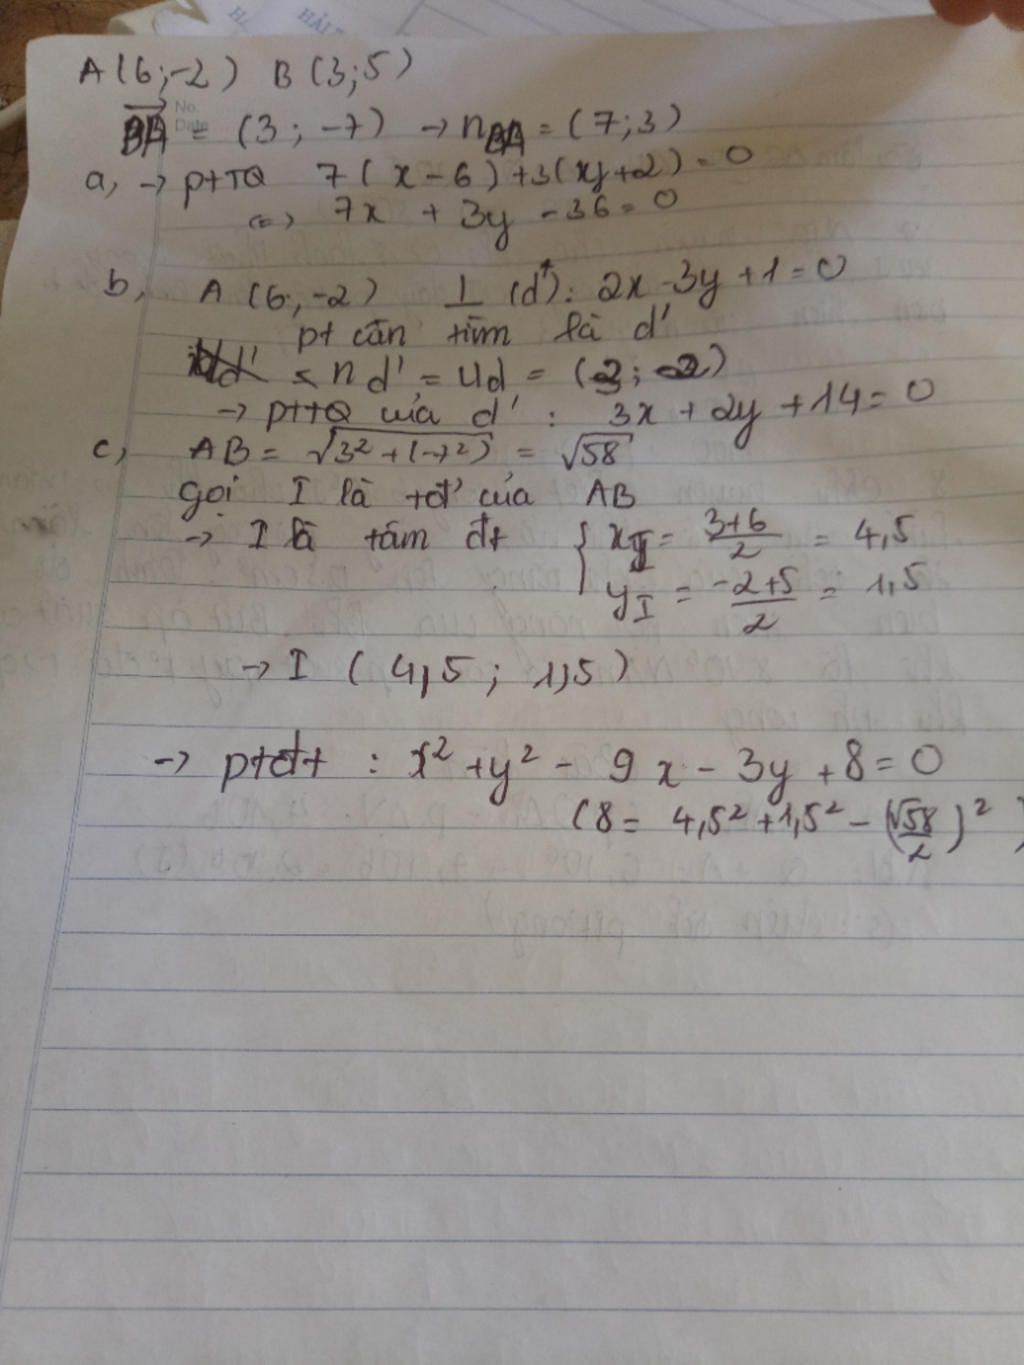 A(6;-2) B(3;5)
No.
Date
BA = (3; -7) → nBA = (7;3)
a, → ptTQ 7(x-6)+3(y+2)=0
(=) 7x + 3y - 36=0
b, A(6;-2) ⊥ (d): 2x-3y+1=0
pt cần tìm là d'
n d' = ud = (3; 2)
→ pttQ của d' : 3x+2y+14=0
c, AB = √3²+(-7²) = √58
gọi I là tđ' của AB
→ I là tâm đt { xI = 3+6/2 = 4,5
yI = -2+5/2 = 1,5
→ I (4,5; 1,5)
→ ptđt : x²+y² - 9x - 3y +8=0
(8 = 4,5²+1,5² - (√58/2)²)